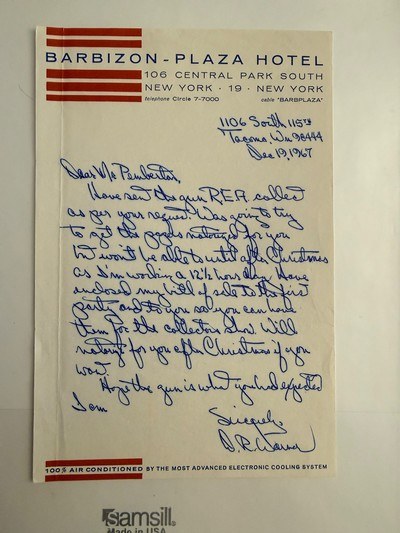 BARBIZON-PLAZA HOTEL
106 CENTRAL PARK SOUTH
NEW YORK · 19 · NEW YORK
telephone Circle 7-7000 cable "BARBPLAZA"
1106 South 115th
Tacoma, Wn 98444
Dec 19, 1967
Dear Mr Pemberton,
Have sent the gun R.E.A. collect
as per your request. Was going to try
to get the papers notarized for you
but won't be able to until after Christmas
as I'm working a 12½ hour day. Have
enclosed my bill of sale to the first
party and to you so you can have
them for the collectors show. Will
notarize for you after Christmas if you
want.
Hope the gun is what you had expected
I am
Sincerely,
D.R.
100% AIR CONDITIONED BY THE MOST ADVANCED ELECTRONIC COOLING SYSTEM
Samsill.
Made in USA